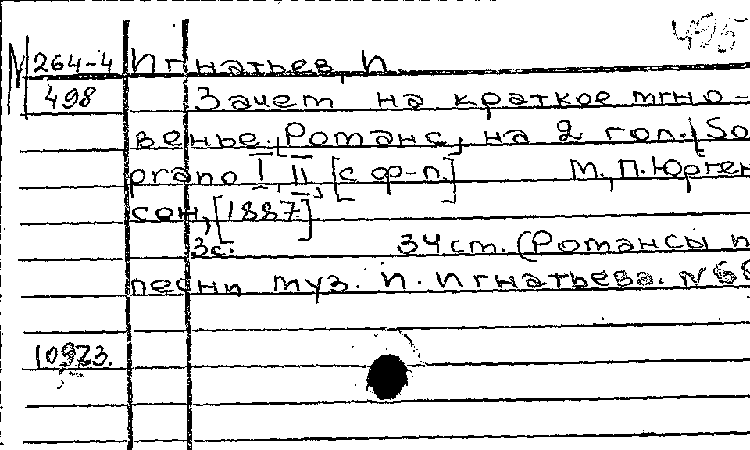 495
N 264-4 Игнатьев, И.
498 Зачем на краткое мгно-
венье. [Романс, на 2 гол. (So
prano I, II, [с ф-п.] М., П. Юрген
сон, [1887]
3с. 34 см. (Романсы и
песни муз. И. Игнатьева. N 68
10973.